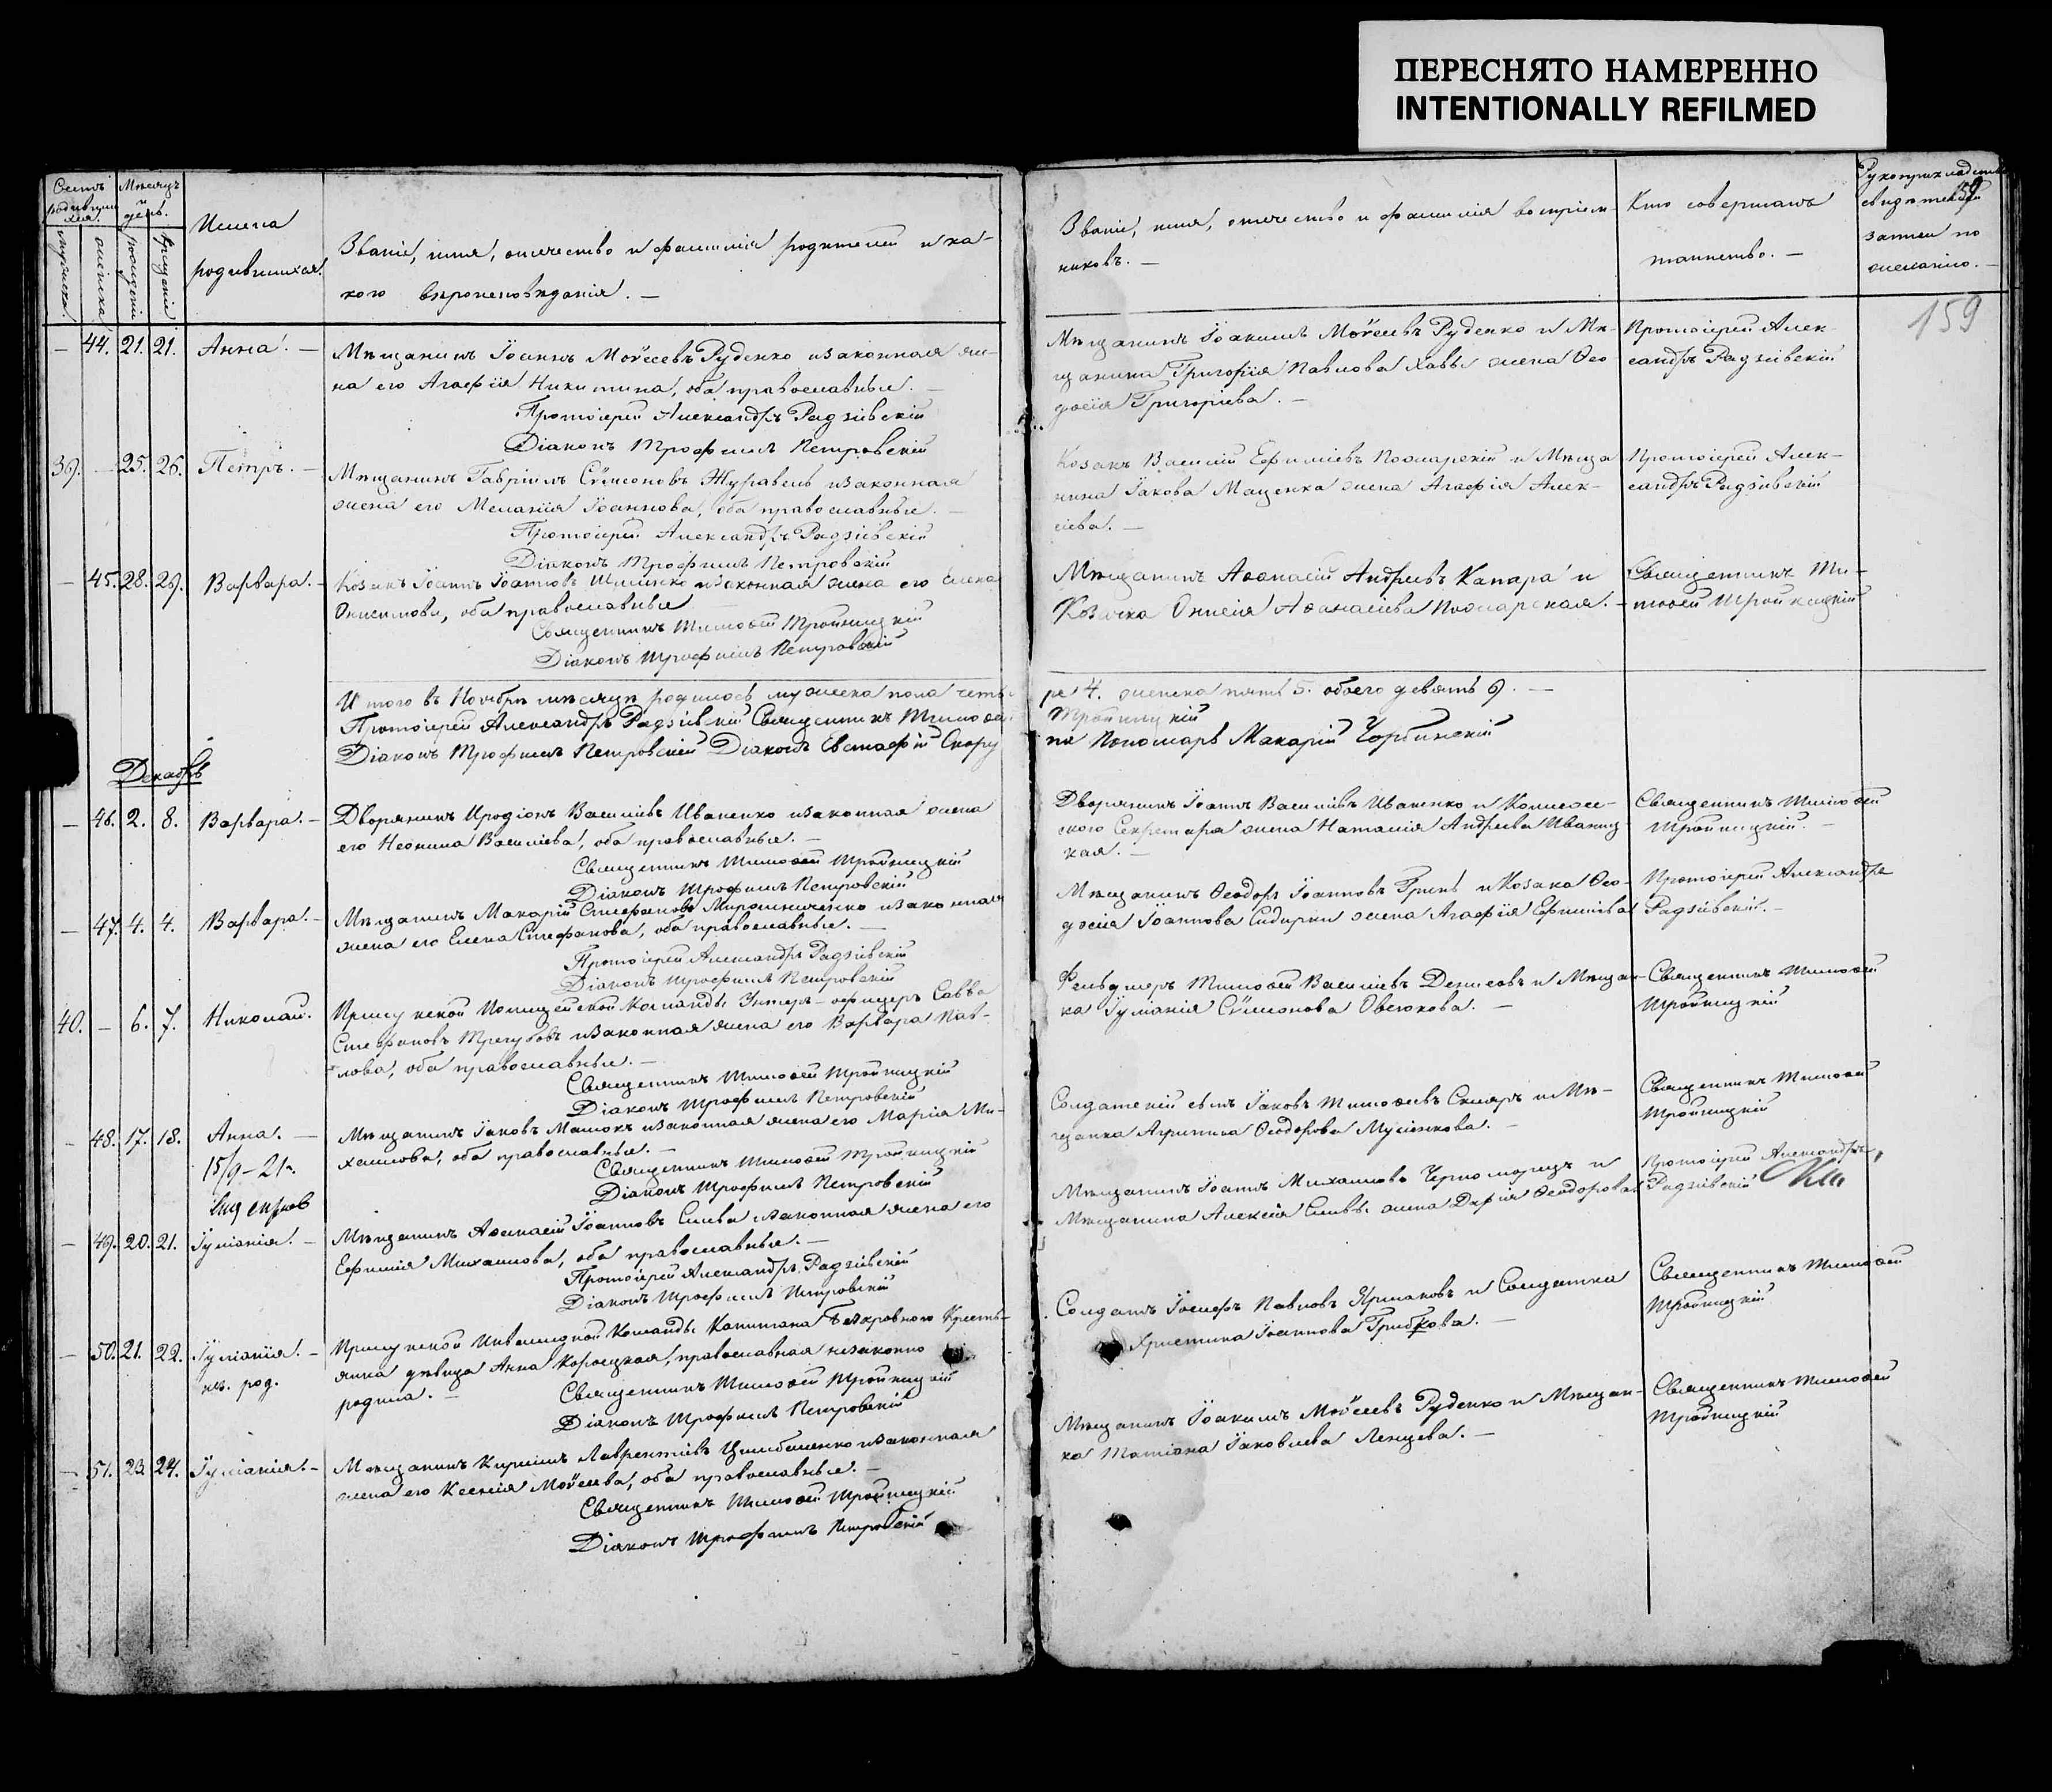 ПЕРЕСНЯТО НАМЕРЕННО
INTENTIONALLY REFILMED
Счетъ родившихся.
мужеска.
женска.
Мѣсяцъ и день.
рожденія
крещенія
Имена
родившихся.
Званіе, имя, отчество и фамилія родителей и ка-
кого вѣроисповѣданія. —
Званіе, имя, отчество и фамилія воспріем-
никовъ. —
Кто совершалъ
таинство. —
Рукоприкладство
свидѣтелей
записи по
желанію. —
159
159
— 44. 21. 21. Анна. —
Мѣщанинъ Іоакимъ Моѵсеевъ Руденко и законная же-
на его Агафія Никитина, оба православные. —
Протоіерей Александръ Радзіевскій
Діаконъ Трофимъ Петровскій
Мѣщанинъ Іоакимъ Моѵсеевъ Руденко и Мѣ-
щанина Григорія Павлова Хавы жена Ѳео-
досія Григоріева. —
Протоіерей Алек-
сандръ Радзіевскій
39. — 25. 26. Петръ. —
Мѣщанинъ Гавріилъ Сѵмеоновъ Журавель и законная
жена его Меланія Іоаннова, оба православные. —
Протоіерей Александръ Радзіевскій
Діаконъ Трофимъ Петровскій
Козакъ Василій Ефиміевъ Пожарскій и Мѣща
нина Іакова Маценка жена Агафія Алек-
сіева. —
Протоіерей Алек-
сандръ Радзіевскій
— 45. 28. 29. Варвара. —
Козакъ Іоаннъ Іоанновъ и законная жена его Елена
Онисимова, оба православные
Священникъ Тимоѳей Тройницкій
Діаконъ Трофимъ Петровскій
Мѣщанинъ Аѳанасій Андреевъ Капара и
Козачка Онисія Аѳанасіева Пожарская. —
Священникъ Ти-
моѳей Тройницкій
Итого въ Ноябрѣ мѣсяцѣ родилось мужеска пола четы-
ре 4. женска пять 5. обоего девять 9. —
Протоіерей Александръ Радзіевскій Священникъ Тимоѳей
Тройницкій
Діаконъ Трофимъ Петровскій Діаконъ Евстафій
Пономарь Макарій Чорбинскій
Декабрь
— 46. 2. 8. Варвара. —
Дворянинъ Иродіонъ Василіевъ Иваненко и законная жена
его Неонила Василіева, оба православные. —
Священникъ Тимоѳей Тройницкій
Діаконъ Трофимъ Петровскій
Дворянинъ Іоаннъ Василіевъ Иваненко и Коллеж-
ского Секретаря жена Наталія Андреева Иваниц-
кая. —
Священникъ Тимоѳей
Тройницкій. —
— 47. 4. 4. Варвара. —
Мѣщанинъ Макарій Стефановъ Мирошниченко и законная
жена его Елена Стефанова, оба православные. —
Протоіерей Александръ Радзіевскій
Діаконъ Трофимъ Петровскій
Мѣщанинъ Ѳеодоръ Іоанновъ Гринь и Козака Ѳео-
досія Іоаннова Сидирки жена Агафія Ефиміева
Протоіерей Александръ
Радзіевскій. —
40. — 6. 7. Николай.
Прилуцкой Полицейской Команды Унтеръ-офицеръ Савва
Стефановъ Трегубовъ и законная жена его Варвара Пав-
лова, оба православные. —
Священникъ Тимоѳей Тройницкій
Діаконъ Трофимъ Петровскій
Фельдшеръ Тимоѳей Василіевъ Денисовъ и Мѣщан-
ка Іуліанія Сѵмеонова Овсюкова. —
Священникъ Тимоѳей
Тройницкій
— 48. 17. 18. Анна. —
15/9–21.
Мѣщанинъ Іаковъ Машокъ и законная жена его Марія Ми-
хаилова, оба православные. —
Священникъ Тимоѳей Тройницкій
Діаконъ Трофимъ Петровскій
Солдатскій сынъ Іаковъ Тимоѳеевъ Скляръ и Мѣ-
щанка Агрипина Ѳеодорова Мусіенкова. —
Священникъ Тимоѳей
Тройницкій
— 49. 20. 21. Іуліанія. —
Мѣщанинъ Аѳанасій Іоанновъ Слива и законная жена его
Ефимія Михаилова, оба православные. —
Протоіерей Александръ Радзіевскій
Діаконъ Трофимъ Петровскій
Мѣщанинъ Іоаннъ Михаиловъ Черноморецъ и
Мѣщанина Алексія Сливы жена Дарія Ѳеодорова
Протоіерей Александръ
Радзіевскій
— 50. 21. 22. Іуліанія. —
нез. род.
Прилуцкой Инвалидной Команды Капитана Безкровного Кресть-
янка дѣвица Анна Корецкая, православная незаконно
родила. —
Священникъ Тимоѳей Тройницкій
Діаконъ Трофимъ Петровскій
Солдатъ Іосифъ Павловъ Ярмаковъ и Солдатка
Христина Іоаннова Грибкова. —
Священникъ Тимоѳей
Тройницкій
— 51. 23. 24. Іуліанія. —
Мѣщанинъ Кириллъ Лаврентіевъ Цимбаленко и законная
жена его Ксенія Моѵсеева, оба православные. —
Священникъ Тимоѳей Тройницкій
Діаконъ Трофимъ Петровскій
Мѣщанинъ Іоакимъ Моѵсеевъ Руденко и Мѣщан-
ка Татіана Іаковлева Ленцева. —
Священникъ Тимоѳей
Тройницкій